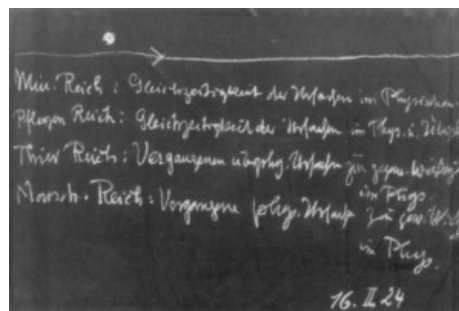 Min. Reich: Gleichzeitigkeit der Ursachen im Physischen.
Pflanzen Reich: Gleichzeitigkeit der Ursachen im Phys. u.
Thier Reich: Vergangenen Ursachen zu gegenw.
im Phys.
Mensch. Reich: Vergangene phys. Ursache zu
im Phys.
16. II 24